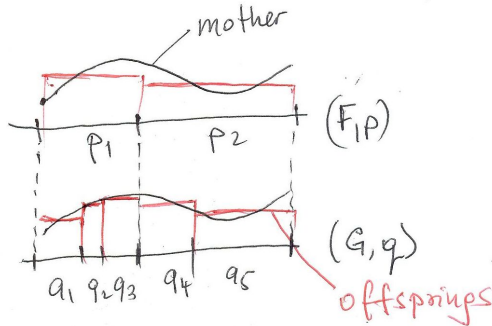 mother
p1 p2 (F,p)
q1 q2 q3 q4 q5 (G,q)
offsprings